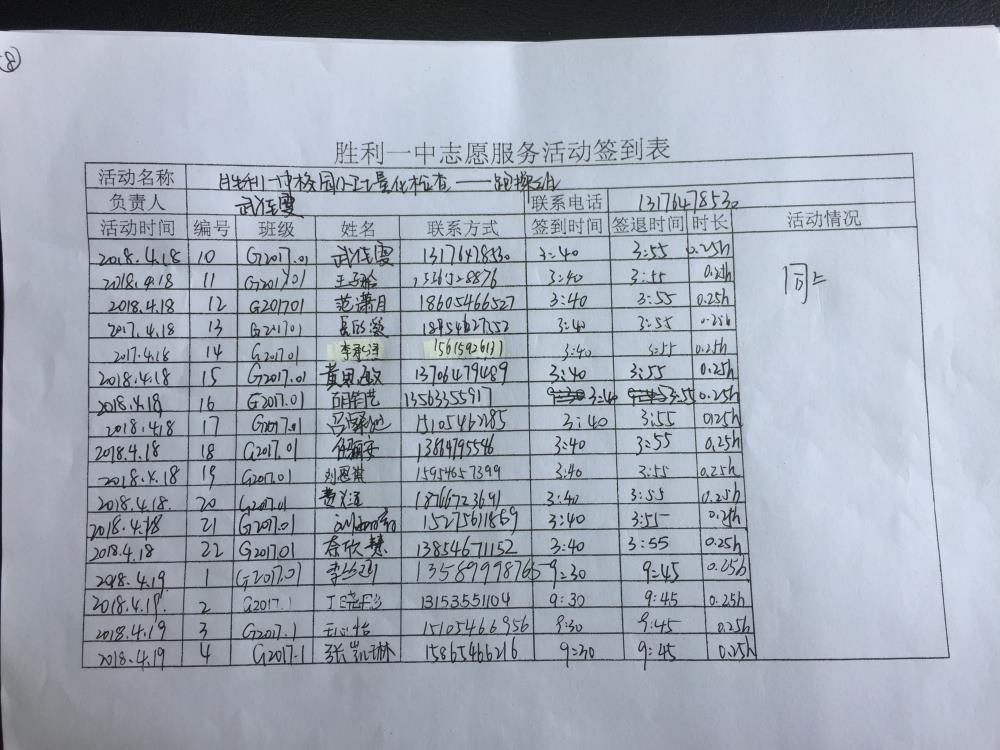 胜利一中志愿服务活动签到表
活动名称 胜利一中校园卫生量化检查——跑操组
负责人 武佳雯 联系电话 13176478530
活动时间 编号 班级 姓名 联系方式 签到时间 签退时间 时长 活动情况
2018.4.18 10 G2017.01 武佳雯 13176478530 3:40 3:55 0.25h
2018.4.18 11 G2017.01 3:40 3:55 0.25h 同上
2018.4.18 12 G201701 范潇月 18605466527 3:40 3:55 0.25h
2017.4.18 13 G201701 3:40 3:55 0.25h
2017.4.18 14 G2017.01 3:40 3:55 0.25h
2018.4.18 15 G2017.01 13706479489 3:40 3:55 0.25h
2018.4.18 16 G2017.01 13563355917 3:40 3:55 0.25h
2018.4.18 17 G2017.01 15105462285 3:40 3:55 0.25h
2018.4.18 18 G2017.01 3:40 3:55 0.25h
2018.4.18 19 G2017.01 15954657399 3:40 3:55 0.25h
2018.4.18. 20 G2017.01 18766723691 3:40 3:55 0.25h
2018.4.18 21 G2017.01 15275611859 3:40 3:55 0.25h
2018.4.18 22 G2017.01 13854671152 3:40 3:55 0.25h
2018.4.19 1 G2017.01 13589998765 9:30 9:45 0.25h
2018.4.19. 2 G2017.1 13153551104 9:30 9:45 0.25h
2018.4.19 3 G2017.1 王心怡 15105466956 9:30 9:45 0.25h
2018.4.19 4 G2017.1 张凯琳 15865466216 9:30 9:45 0.25h